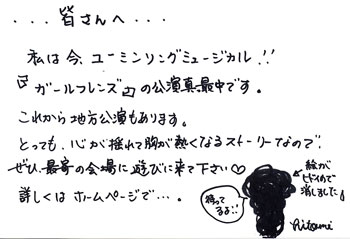 ...皆さんへ...
私は今、ユーミンソングミュージカル!!
『ガールフレンズ』の公演真最中です。
これから地方公演もあります。
とっても、心が揺れて胸が熱くなるストーリーなので、
ぜひ、最寄の会場に遊びに来て下さい♡
詳しくはホームページで...。
待ってるよ!!
絵が
ヒドイので
消しました
Hitomi